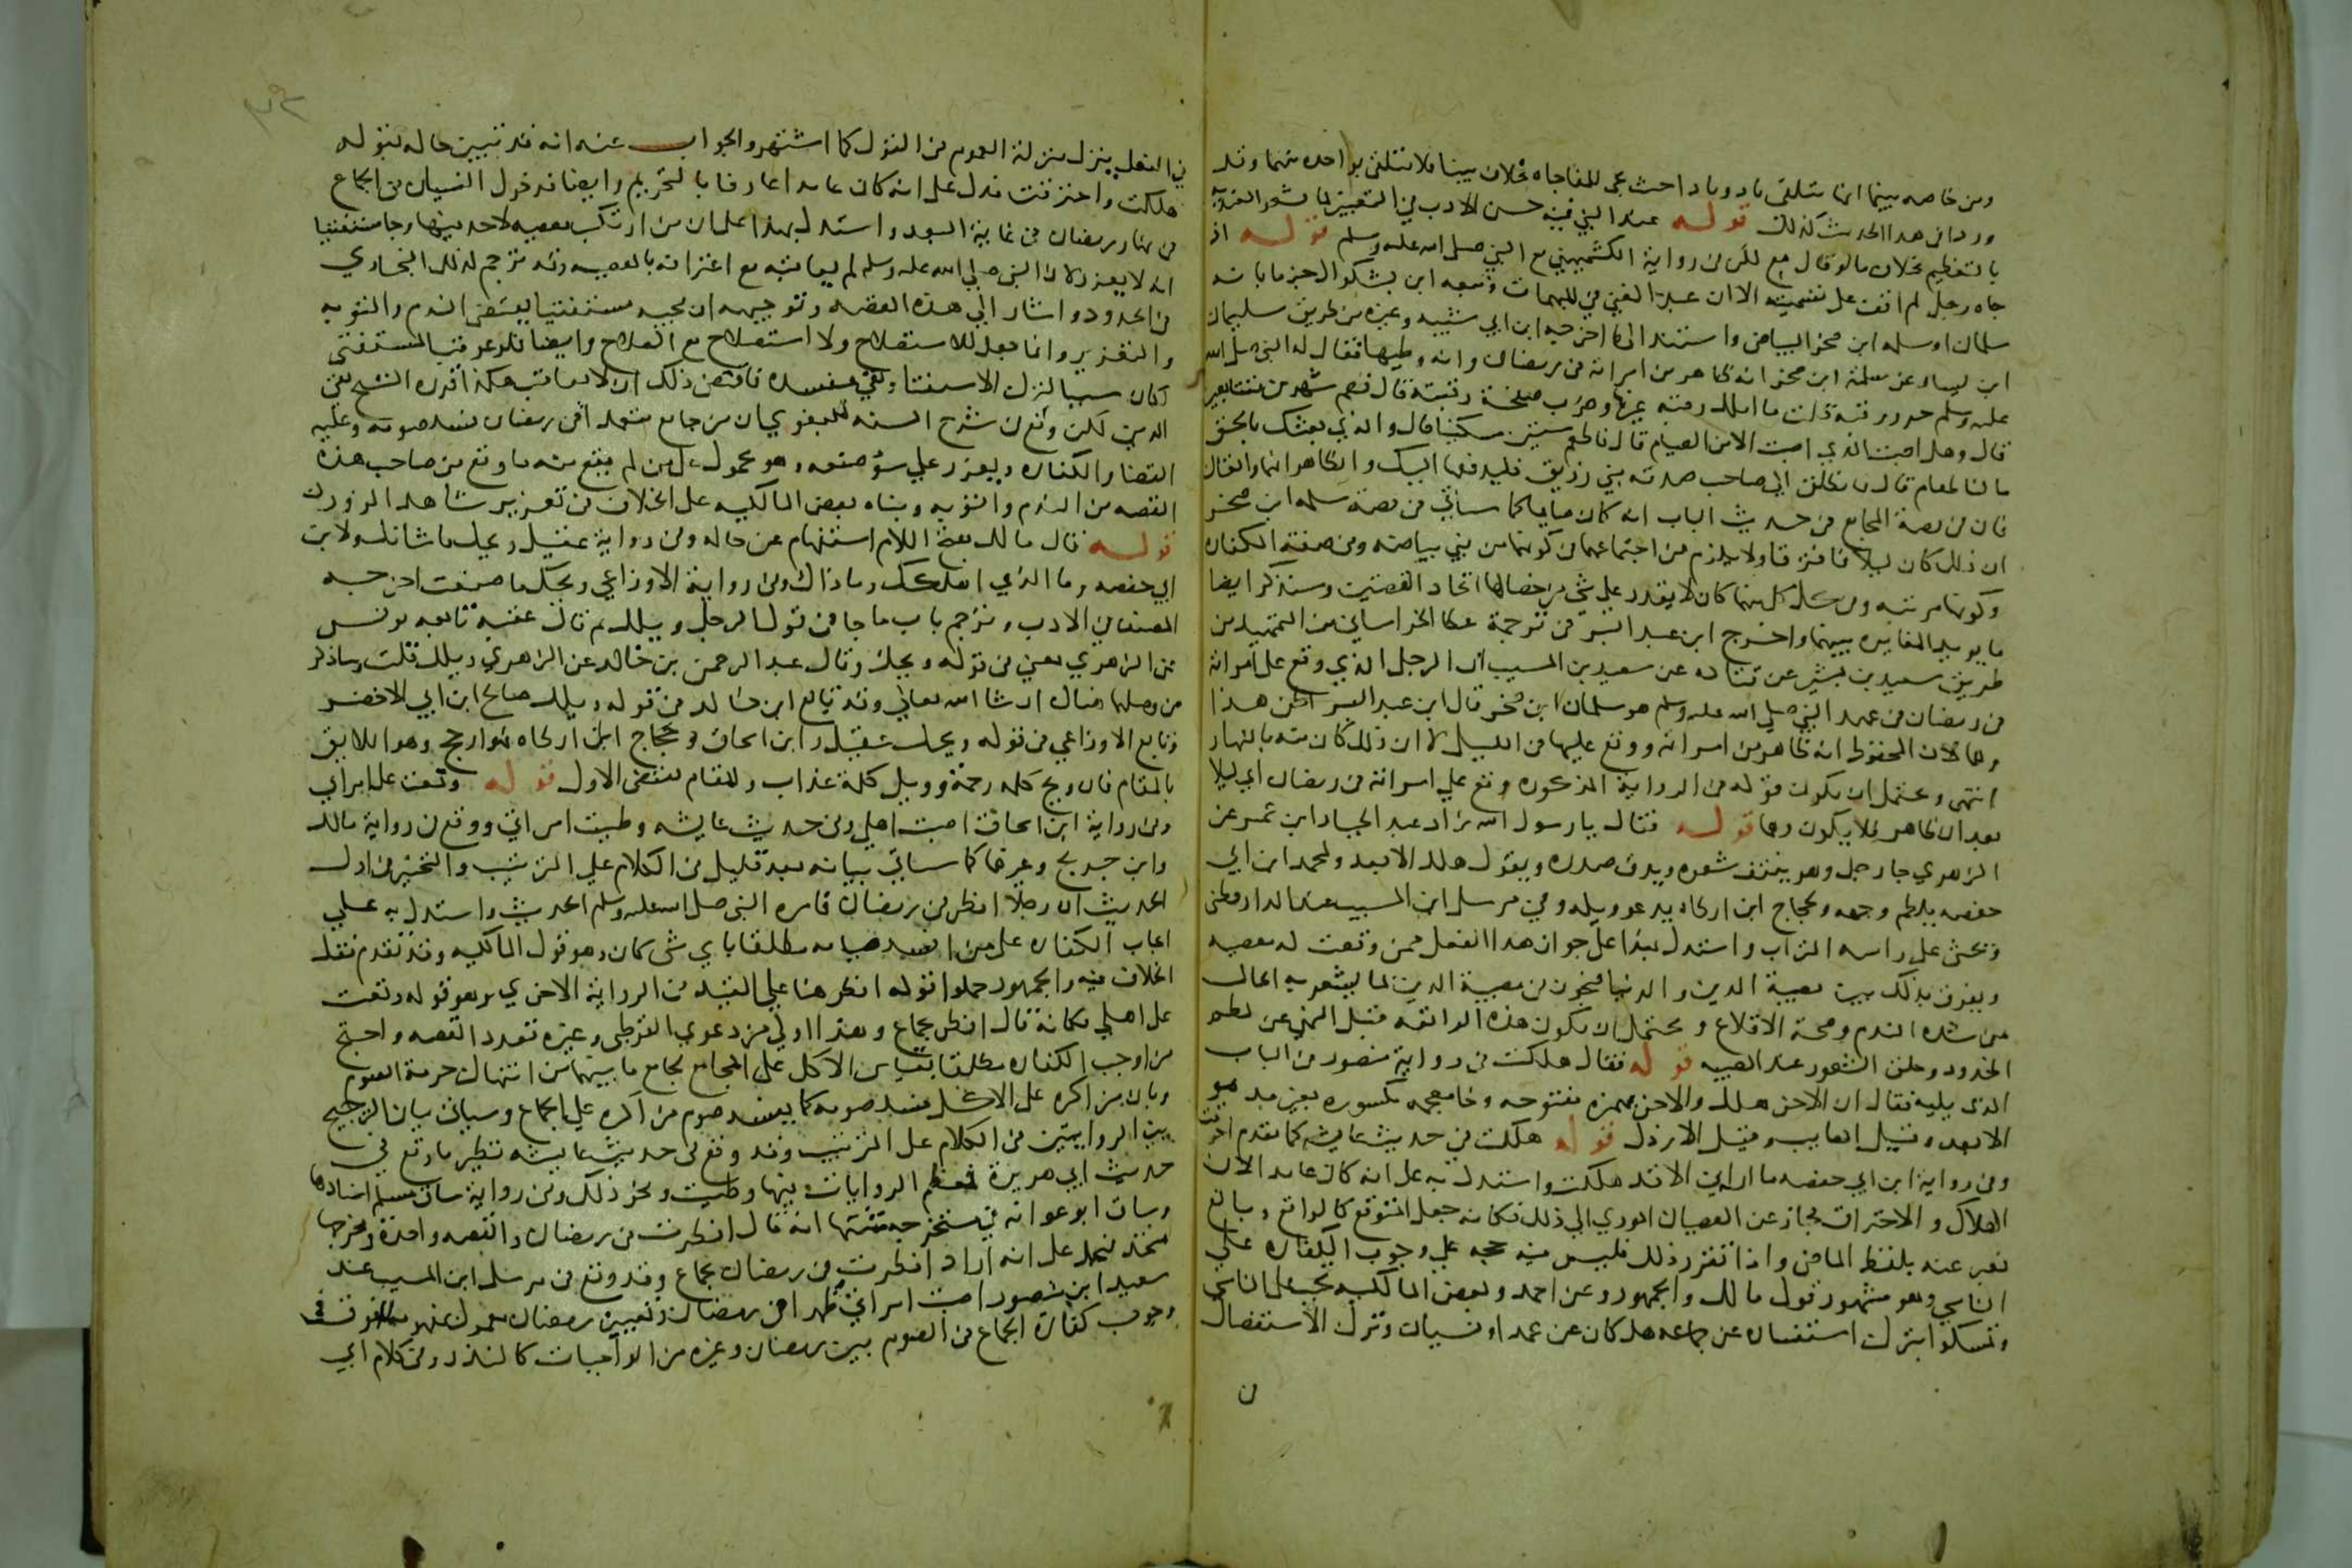 ومن خاصه بينما انها تتلقى باذ وباذا حيث تجي للمفاجاه بخلاف بينا فلا تتلقى بواحده منهما وقد
وردا في هذا الحديث كذلك قوله عند النبي فيه حسن الادب في التعبير لما تشعر العنديه
بالتعظيم بخلاف ما لو قال مع لكن في رواية الكشميهني مع النبي صلى الله عليه وسلم قوله اذ
جاه رجل لم اقف على تسميته الا ان عبد الغني في المبهمات وتبعه ابن بشكوال جزما بانه
سلمان او سلمه ابن صخر البياضي واستند الى ما اخرجه ابن ابي شيبه وغيره من طريق سليمان
ابن يسار عن سلمة ابن صخر انه ظاهر من امراته في رمضان وانه وطيها فقال له النبي صلى الله
عليه وسلم حرر رقبة قلت ما املك رقبة غيرها وضرب صفحة رقبته قال فصم شهرين متتابعين
قال وهل اصبت الذي اصبت الا من الصيام قال فاطعم ستين مسكينا قال والذي بعثك بالحق
ما لنا طعام قال فانطلق الى صاحب صدقة بني زريق فليدفعها اليك والظاهر انهما واقعتان
فان في قصة المجامع في حديث الباب انه كان صايما كما سياتي وفي قصة سلمه ابن صخر
ان ذلك كان ليلا فافترقا ولا يلزم من اجتماعهما في كونهما من بني بياضه وفي صفة الكفاره
وكونها مرتبه وفي كل منهما كان لا يقدر على شي من خصالها اتحاد القصتين وسنذكر ايضا
ما يويد المغايره بينهما واخرج ابن عبد البر في ترجمة عطا الخراساني من التمهيد من
طريق سعيد بن بشير عن قتاده عن سعيد بن المسيب ان الرجل الذي وقع على امراته
في رمضان في عهد النبي صلى الله عليه وسلم هو سلمان ابن صخر قال ابن عبد البر اظن هذا
وهما لان المحفوظ انه ظاهر من امراته ووقع عليها في الليل لا ان ذلك كان منه بالنهار
انتهى ويحتمل ان يكون قوله في الرواية المذكوره وقع على امراته في رمضان اي ليلا
بعد ان ظاهر فلا يكون وهما قوله فقال يا رسول الله زاد عبد الجبار ابن عمر عن
الزهري جا رجل وهو ينتف شعره ويدق صدره ويقول هلك الابعد ولمحمد ابن ابي
حفصه يلطم وجهه ولحجاج ابن ارطاه يدعو ويله وفي مرسل ابن المسيب عند الدارقطني
ويحثى على راسه التراب واستدل بهذا على جواز هذا الفعل ممن وقعت له معصيه
ويفرق بذلك بين مصيبة الدين والدنيا فيجوز في مصيبة الدين لما يشعر به الحال
من شده الندم وصحة الاقلاع ويحتمل ان يكون هذه الواقعه قبل النهي عن لطم
الخدود وحلق الشعور عند المصيبه قوله فقال هلكت في رواية منصور في الباب
الذي يليه فقال ان الاخر هلك والاخر بهمزه مفتوحه وخا معجمه مكسوره بغير مد هو
الابعد وقيل الغايب وقيل الارذل قوله هلكت في حديث عايشه كما تقدم احترقت
وفي رواية ابن ابي حفصه ما اراني الا قد هلكت واستدل به على انه كان عامدا لان
الهلاك والاحتراق مجاز عن العصيان المودي الى ذلك فكانه جعل المتوقع كالواقع وبالغ
فعبر عنه بلفظ الماضي واذا تقرر ذلك فليس فيه حجه على وجوب الكفاره على
الناسي وهو مشهور قول مالك والجمهور وعن احمد وبعض المالكيه تجب على الناسي
وتمسكوا بترك استفساره عن جماعه هل كان عن عمد او نسيان وترك الاستفصال
في الفعل ينزل منزلة العموم في القول كما اشتهر والجواب عنه انه قد تبين حاله بقوله
هلكت واحترقت فدل على انه كان عامدا عارفا بالتحريم وايضا فدخول النسيان في الجماع
في نهار رمضان في غاية البعد واستدل بهذا على ان من ارتكب معصيه لا حد فيها وجا مستفتيا
انه لا يعزر لان النبي صلى الله عليه وسلم لم يعاقبه مع اعترافه بالمعصيه وقد ترجم لذلك البخاري
في الحدود واشار الى هذه القصه وتوجيهه ان مجيه مستفتيا يقتضي الندم والتوبه
والتعزير وانما جعل للاستصلاح ولا استصلاح مع الصلاح وايضا فلو عوقب المستفتي
لكان سببا لترك الاستفتا وهي مفسده فاقتضى ذلك ان لا يعاقب هكذا قرره الشيخ تقي
الدين لكن وقع في شرح السنه للبغوي ان من جامع متعمدا في رمضان فسد صومه وعليه
القضا والكفاره ويعزر على سؤ صنعه وهو محمول على من لم يقع منه ما وقع من صاحب هذه
القصه من الندم والتوبه وبناه بعض المالكيه على الخلاف في تعزير شاهد الزور
قوله قال مالك بفتح اللام استفهام عن حاله وفي رواية عقيل ويحك ما شانك ولابن
ابي حفصه وما الذي اهلكك وما ذاك وفي رواية الاوزاعي ويحك ما صنعت اخرجه
المصنف في الادب وترجم باب ما جا في قول الرجل ويلك ثم قال عقبه تابعه يونس
عن الزهري يعني في قوله ويحك وقال عبد الرحمن بن خالد عن الزهري ويلك قلت وساذكر
من وصلهما هناك ان شا الله تعالى وقد تابع ابن خالد في قوله ويلك صالح ابن ابي الاخضر
وتابع الاوزاعي في قوله ويحك عقيل وابن اسحاق وحجاج ابن ارطاه فهو ارجح وهو اللايق
بالمقام فان ويح كلمه رحمة وويل كلمة عذاب والمقام يقتضي الاول قوله وقعت على امراتي
وفي رواية ابن اسحاق اصبت اهلي وفي حديث عايشه وطيت امراتي ووقع في رواية مالك
وابن جريج وغيرهما كما سياتي بيانه بعد قليل في الكلام على الترتيب والتخيير في اول
الحديث ان رجلا افطر في رمضان فامره النبي صلى الله عليه وسلم الحديث واستدل به على
ايجاب الكفاره على من افسد صيامه مطلقا باي شي كان وهو قول المالكيه وقد تقدم نقل
الخلاف فيه والجمهور حملوا قوله افطر هنا على المقيد في الرواية الاخري وهو قوله وقعت
على اهلي فكانه قال افطر بجماع وهذا اولى من دعوى القرطبي وغيره تعدد القصه واحتج
من اوجب الكفاره مطلقا بقياس الاكل على المجامع بجامع ما بينهما من انتهاك حرمة الصوم
وبان من اكره على الاكل فسد صومه كما يفسد صوم من اكره على الجماع وسياتي بيان الترجيح
بين الروايتين في الكلام على الترتيب وقد وقع في حديث عايشه نظير ما وقع في
حديث ابي هريرة فمعظم الروايات فيها وطيت ونحو ذلك وفي رواية ساق مسلم اسنادها
وساق ابو عوانه في مستخرجه متنها انه قال افطرت في رمضان والقصه واحدة ومخرجها
متحد فيحمل على انه اراد افطرت في رمضان بجماع وقد وقع في مرسل ابن المسيب عند
سعيد ابن منصور اصبت امراتي ظهرا في رمضان وتعيين رمضان معمول بمفهومه للفرق في
وجوب كفارة الجماع في الصوم بين رمضان وغيره من الواجبات كالنذر وفي كلام ابي